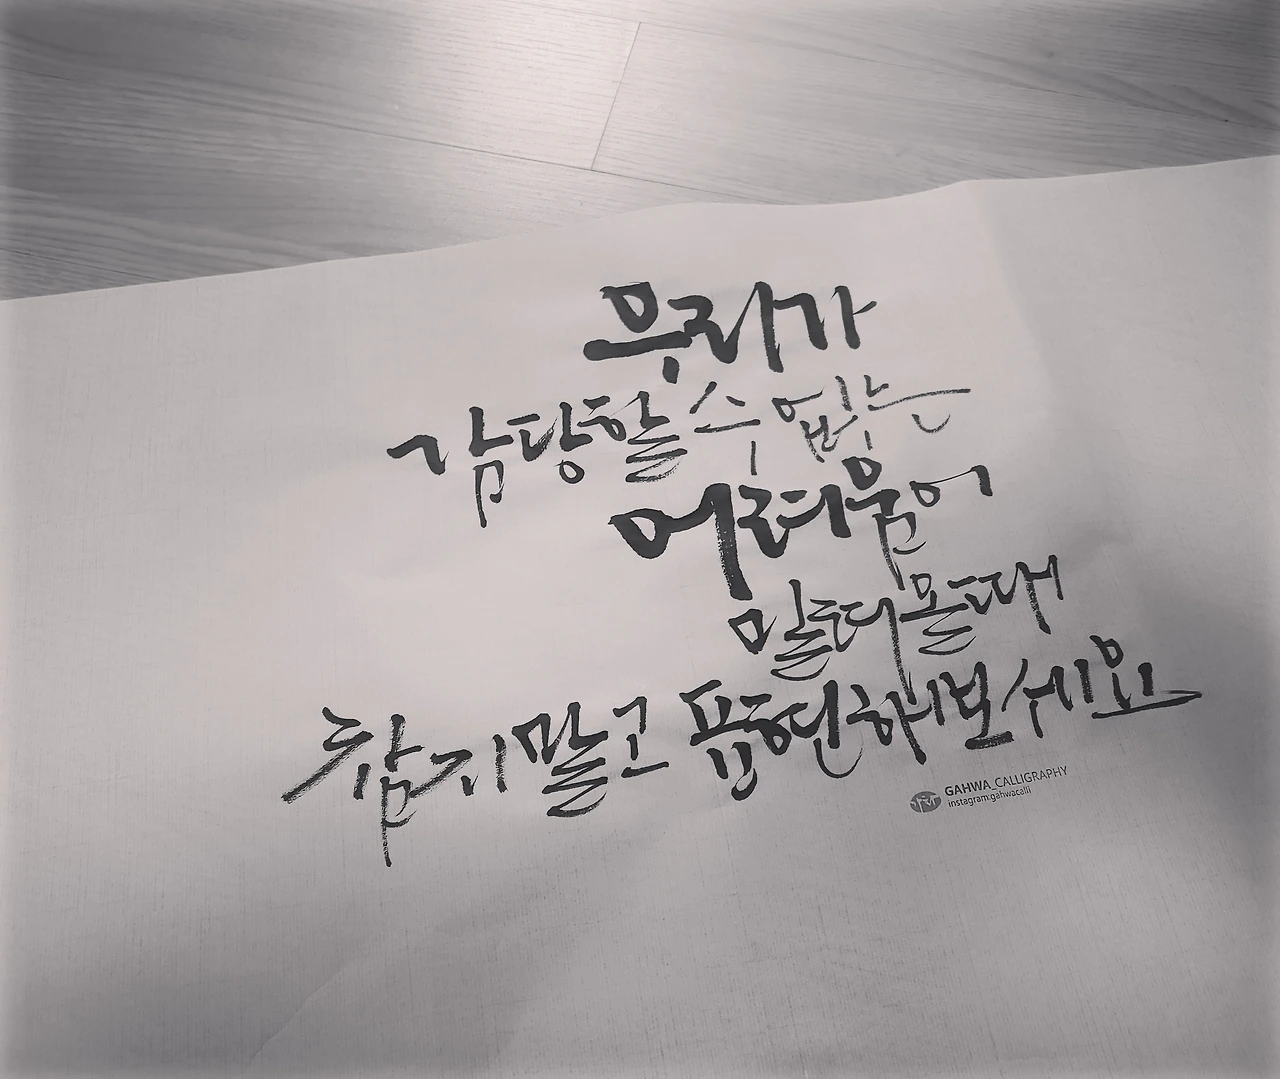 우리가
감당할 수 없는
어려움이
밀려올때
참기말고 표현해보세요
GAHWA_CALLIGRAPHY
instagram:gahwacalli